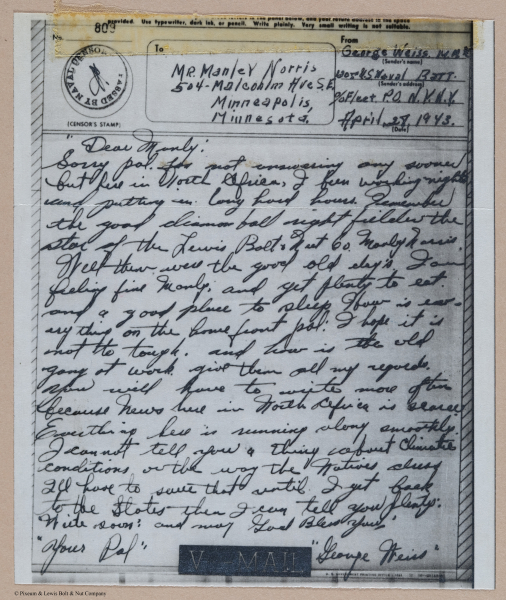 provided. Use typewriter, dark ink, or pencil. Write plainly. Very small writing is not suitable.
809
PASSED BY NAVAL CENSOR
(CENSOR'S STAMP)
To
Mr. Manley Norris
504-Malcolm Ave S.E.
Minneapolis,
Minnesota.
From
George Weiss
(Sender's name)
Naval Batt.
(Sender's address)
% Fleet P.O. N.Y. N.Y.
April 28, 1943.
(Date)
"Dear Manly!
Sorry pal for not answering any sooner
but here in North Africa, I been working nights
and putting in long hard hours. Remember
the good diamond ball right fielder the
star of the Lewis Bolt & Nut Co. Manly Norris.
Well them were the good old day's. I am
feeling fine Manly. and get plenty to eat.
and a good place to sleep. How is ev-
erything on the home front pal. I hope it is
not to tough. and how is the old
gang at work. give them all my regards.
you will have to write more often
because News here in North Africa is scarce.
Everything here is running along smoothly.
I cannot tell you a thing about Climatic
conditions or the way the Natives dress
I'll have to save that until I get back
to the States then I can tell you plenty.
Write soon! and may "God Bless You"
"Your Pal"
V - MAIL
"George Weiss"
© Piseam & Lewis Bolt & Nut Company